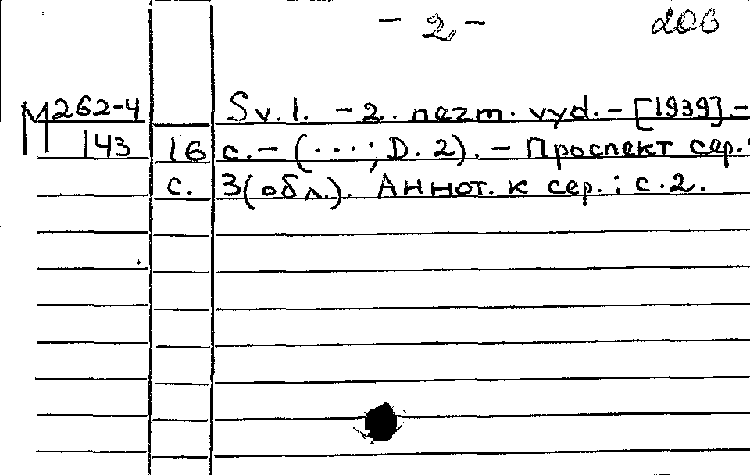 - 2 - 206
М262-4 Sv. 1. - 2. nezm. vyd. - [1939] -
143 16 с. - (...; D. 2). - Проспект сер.:
с. 3 (обл.). Аннот. к сер.: с. 2.